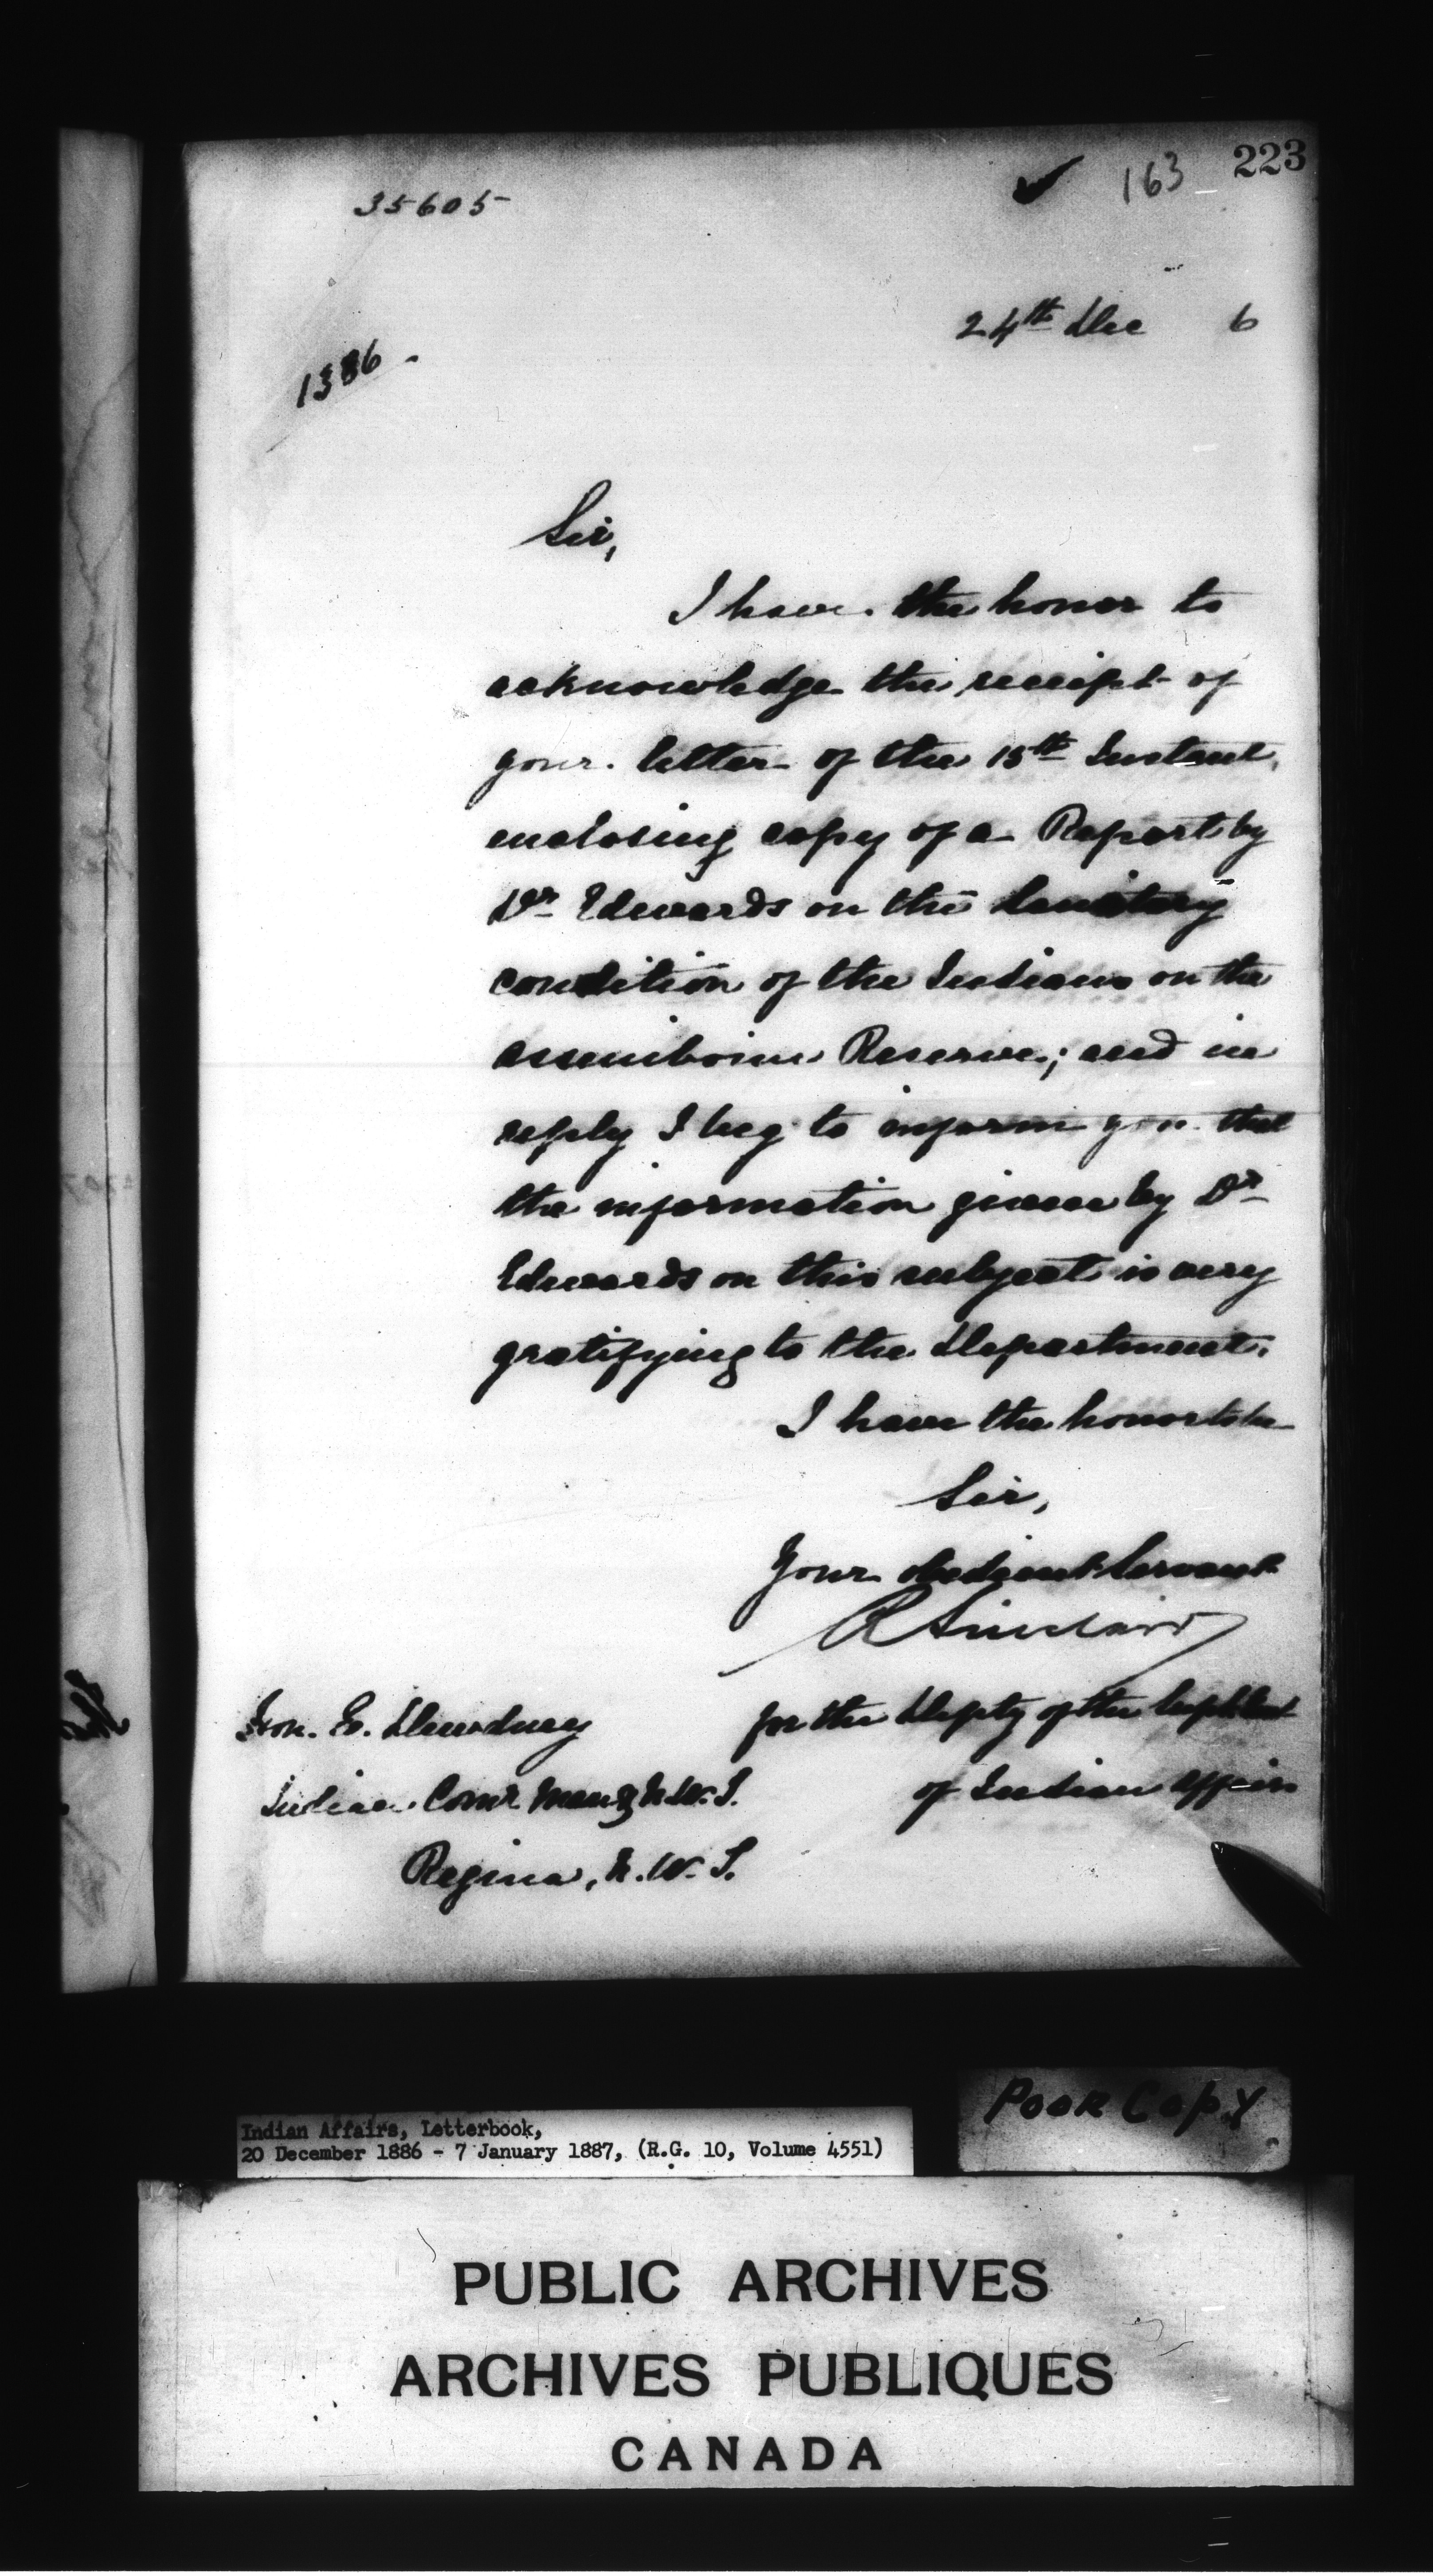 223
163
35605
24th Dec 6
1386
Sir,
I have the honor to
acknowledge the receipt of
your letter of the 15th Instant,
enclosing copy of a Report by
Dr Edwards on the Sanitary
condition of the Indians on the
assiniboine Reserve; and in
reply I beg to inform you that
the information given by Dr
Edwards on this subject is very
gratifying to the Department.
I have the honor to be
Sir,
Your obedient Servant
R Sinclair
for the Depty of the Supt Genl
of Indian Affairs
Hon. E. Dewdney
Indian Comr Man & N.W.T.
Regina, N.W.T.
Poor Copy
Indian Affairs, Letterbook,
20 December 1886 - 7 January 1887, (R.G. 10, Volume 4551)
PUBLIC ARCHIVES
ARCHIVES PUBLIQUES
CANADA